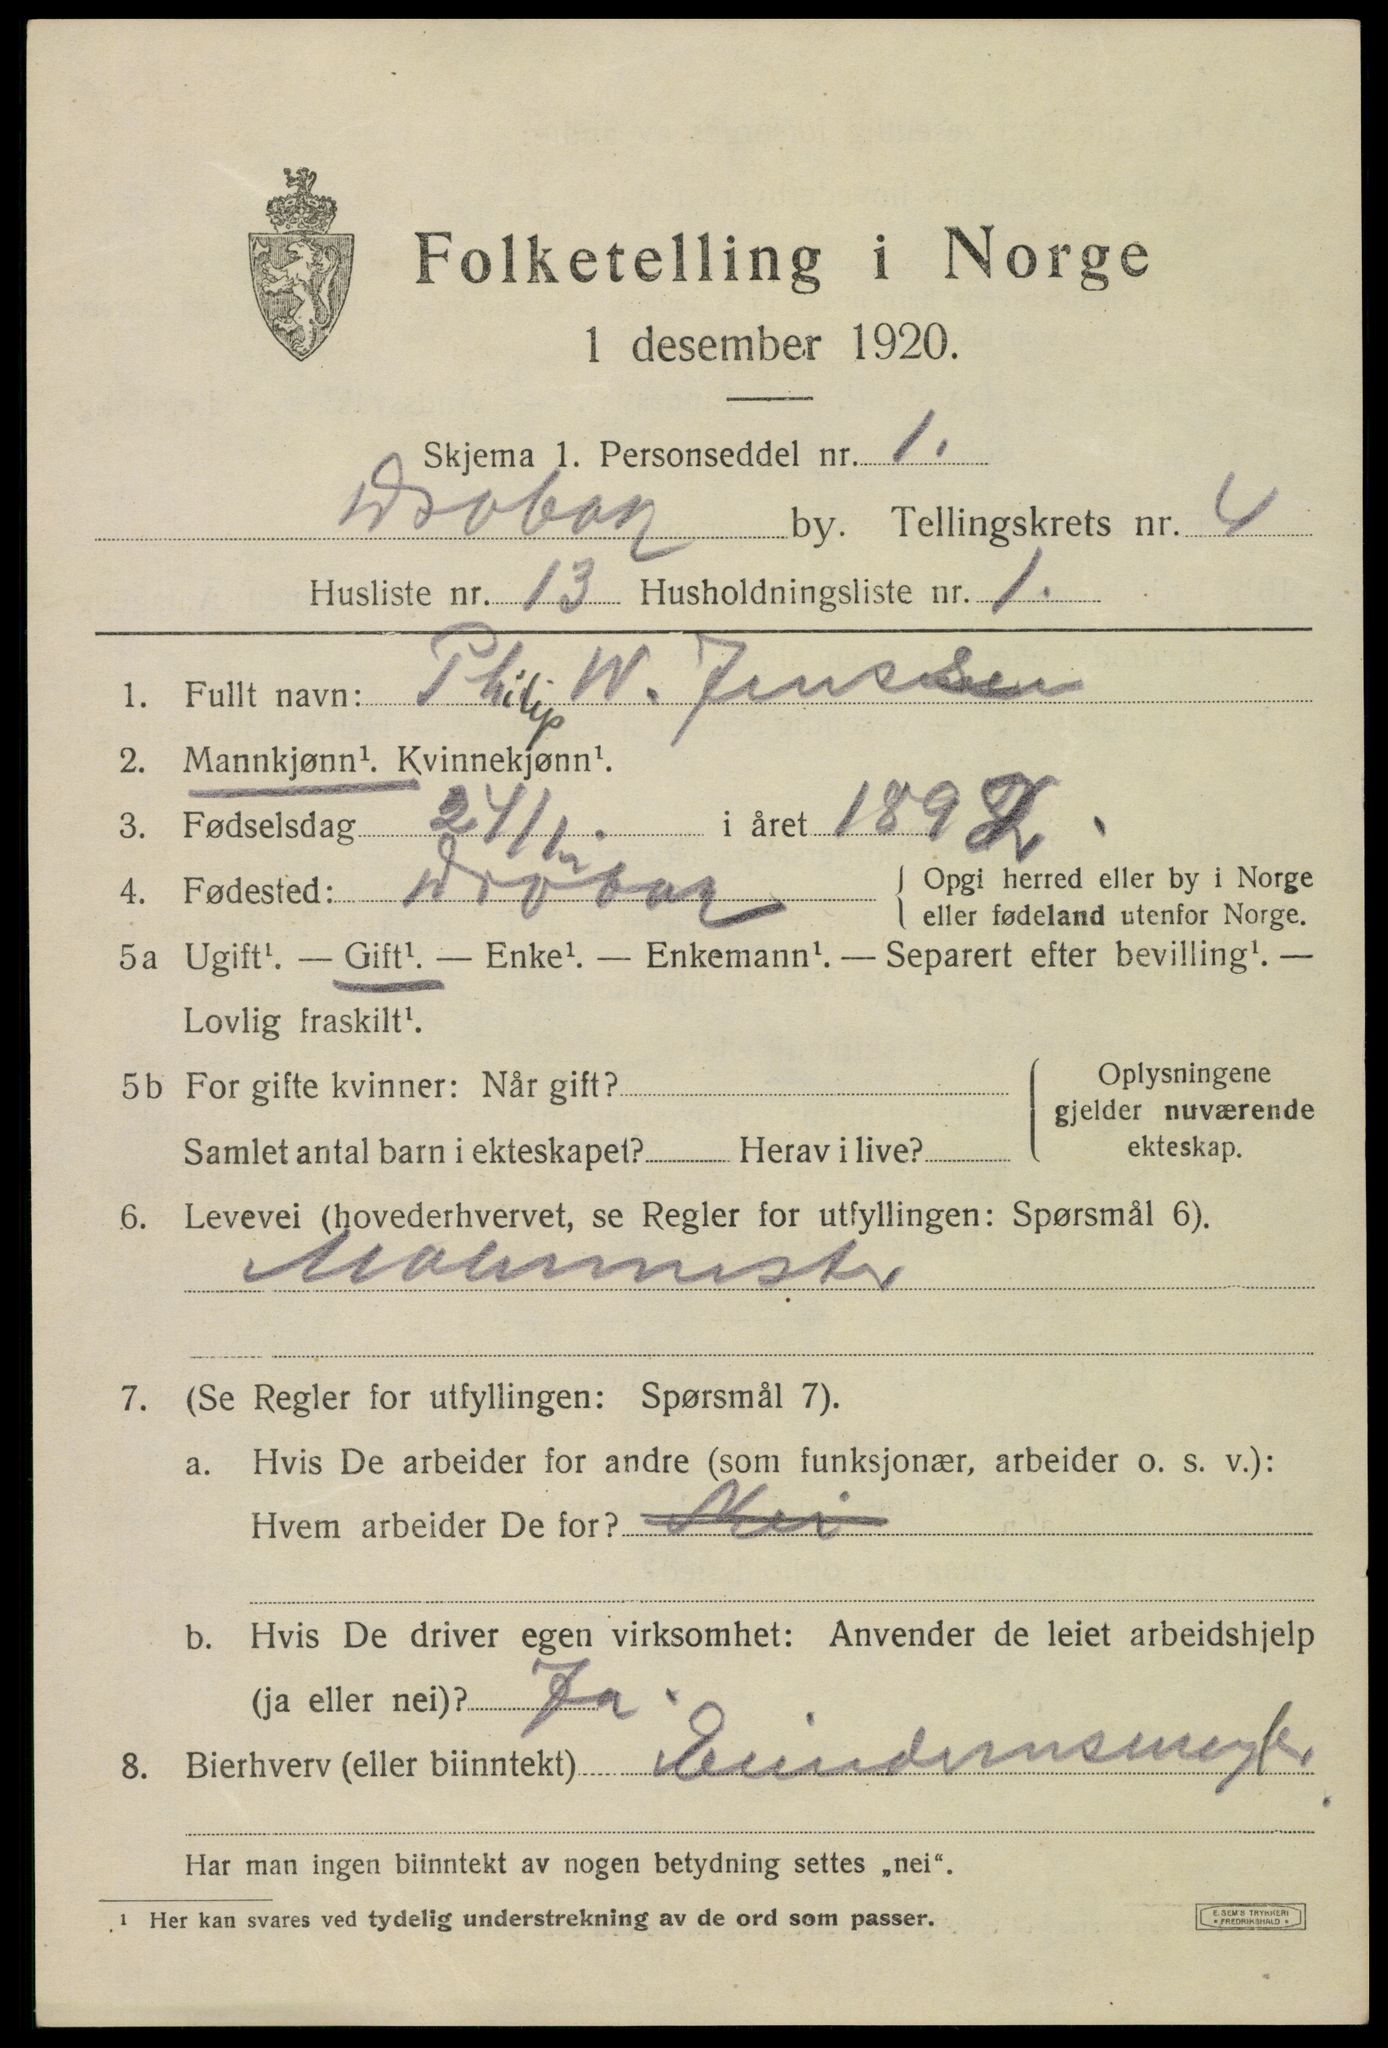 Folketelling i Norge
1 desember 1920.
Skjema 1. Personseddel nr. 1.
Drøbak by. Tellingskrets nr. 4
Husliste nr. 13 Husholdningsliste nr. 1.
1. Fullt navn: Philip W. Jenssen
2. Mannkjønn¹. Kvinnekjønn¹.
3. Fødselsdag 24/1 i året 189
4. Fødested: Drøbak { Opgi herred eller by i Norge
eller fødeland utenfor Norge.
5a Ugift¹. — Gift¹. — Enke¹. — Enkemann¹. — Separert efter bevilling¹. —
Lovlig fraskilt¹.
5b For gifte kvinner: Når gift?
Samlet antal barn i ekteskapet? Herav i live?
Oplysningene
gjelder nuværende
ekteskap.
6. Levevei (hovederhvervet, se Regler for utfyllingen: Spørsmål 6).
Malermester
7. (Se Regler for utfyllingen: Spørsmål 7).
a. Hvis De arbeider for andre (som funksjonær, arbeider o. s. v.):
Hvem arbeider De for? Nei
b. Hvis De driver egen virksomhet: Anvender de leiet arbeidshjelp
(ja eller nei)? Ja.
8. Bierhverv (eller biinntekt) Eiendomsmegler.
Har man ingen biinntekt av nogen betydning settes „nei“.
¹ Her kan svares ved tydelig understrekning av de ord som passer.
E. SEM'S TRYKKERI
* FREDRIKSHALD *